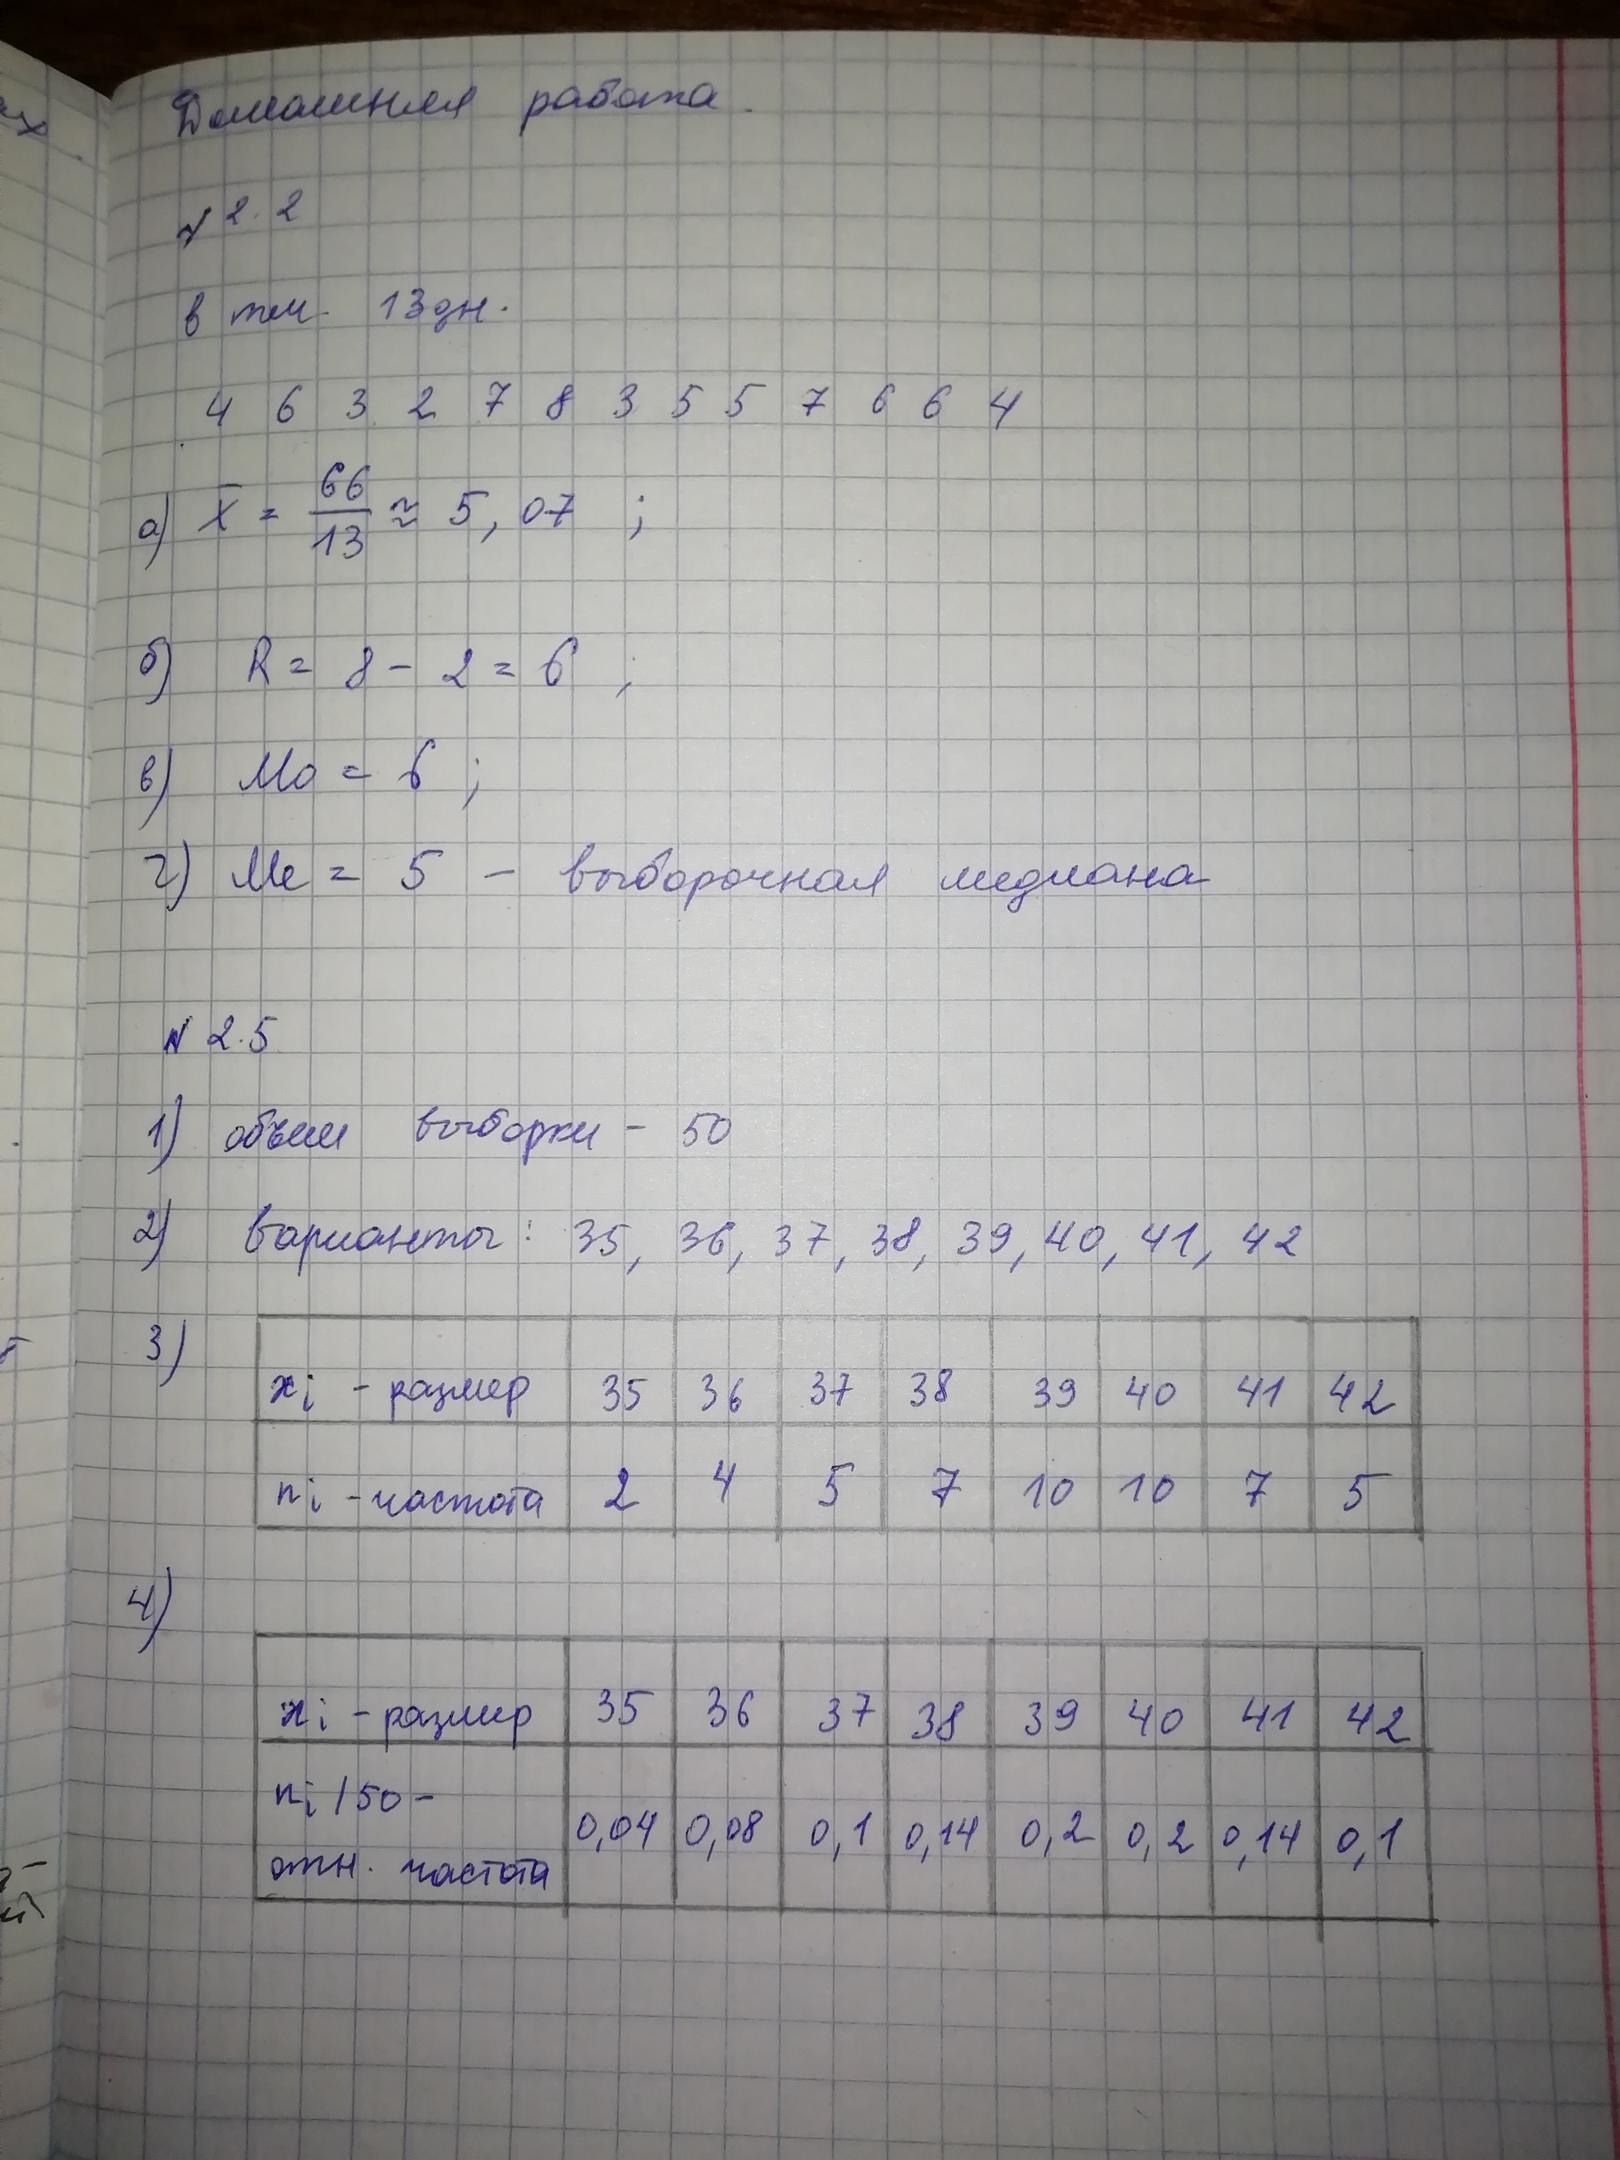 Домашняя работа.
№ 2.2
в теч. 13 дн.
4 6 3 2 7 8 3 5 5 7 6 6 4
а) x̄ = 66/13 ≈ 5,07 ;
б) R = 8 - 2 = 6 ;
в) Mo = 6 ;
г) Me = 5 - выборочная медиана
№ 2.5
1) объем выборки - 50
2) варианты: 35, 36, 37, 38, 39, 40, 41, 42
3)
xi - размер 35 36 37 38 39 40 41 42
ni - частота 2 4 5 7 10 10 7 5
4)
xi - размер 35 36 37 38 39 40 41 42
ni / 50 -
отн. частота 0,04 0,08 0,1 0,14 0,2 0,2 0,14 0,1